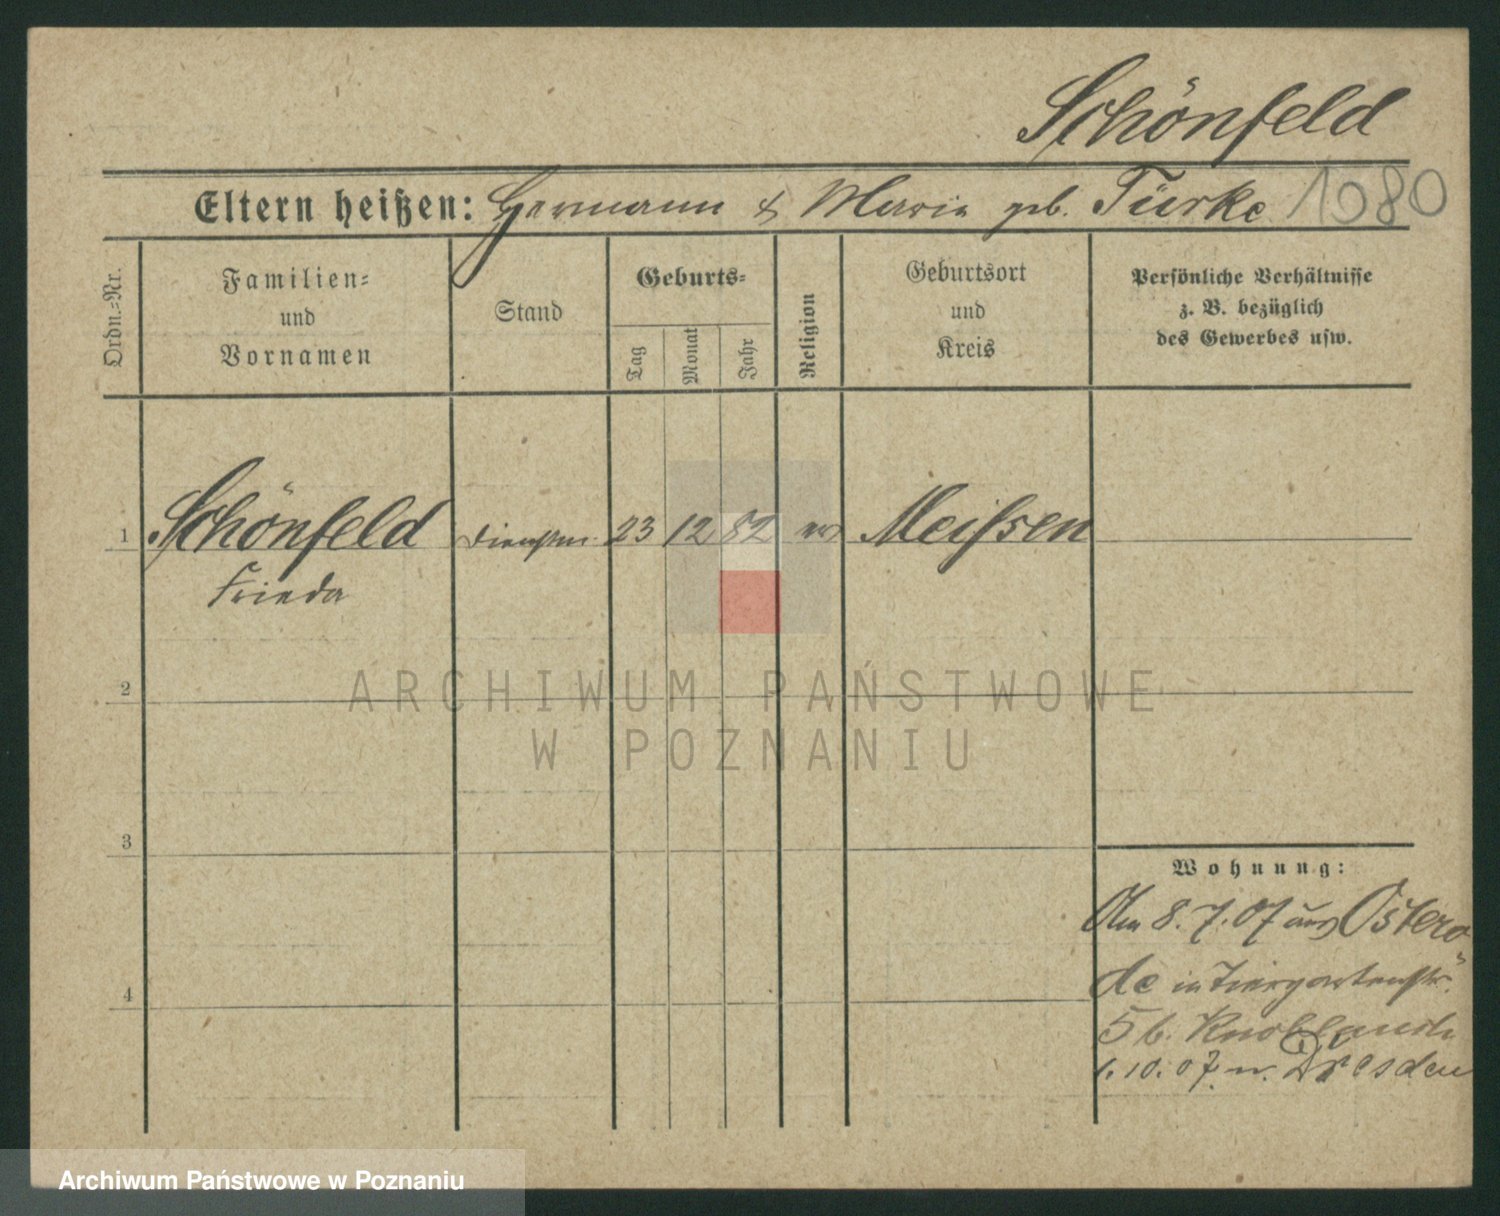 Schönfeld
Eltern heißen: Hermann & Marie geb. Türke 1080
Ordn.-Nr.
Familien-
und
Vornamen
Stand
Geburts-
Tag
Monat
Jahr
Religion
Geburtsort
und
Kreis
Persönliche Verhältnisse
z. B. bezüglich
des Gewerbes usw.
1 Schönfeld Dienstm. 23 12 82 ev Meißsen
Frieda
2
ARCHIWUM PAŃSTWOWE
W POZNANIU
3
Wohnung:
Am 8.7.07 aus Ostero
de in Tiergartenstr.
4
5 b. Knoblauch
1.10.07. n. Dresden
Archiwum Państwowe w Poznaniu